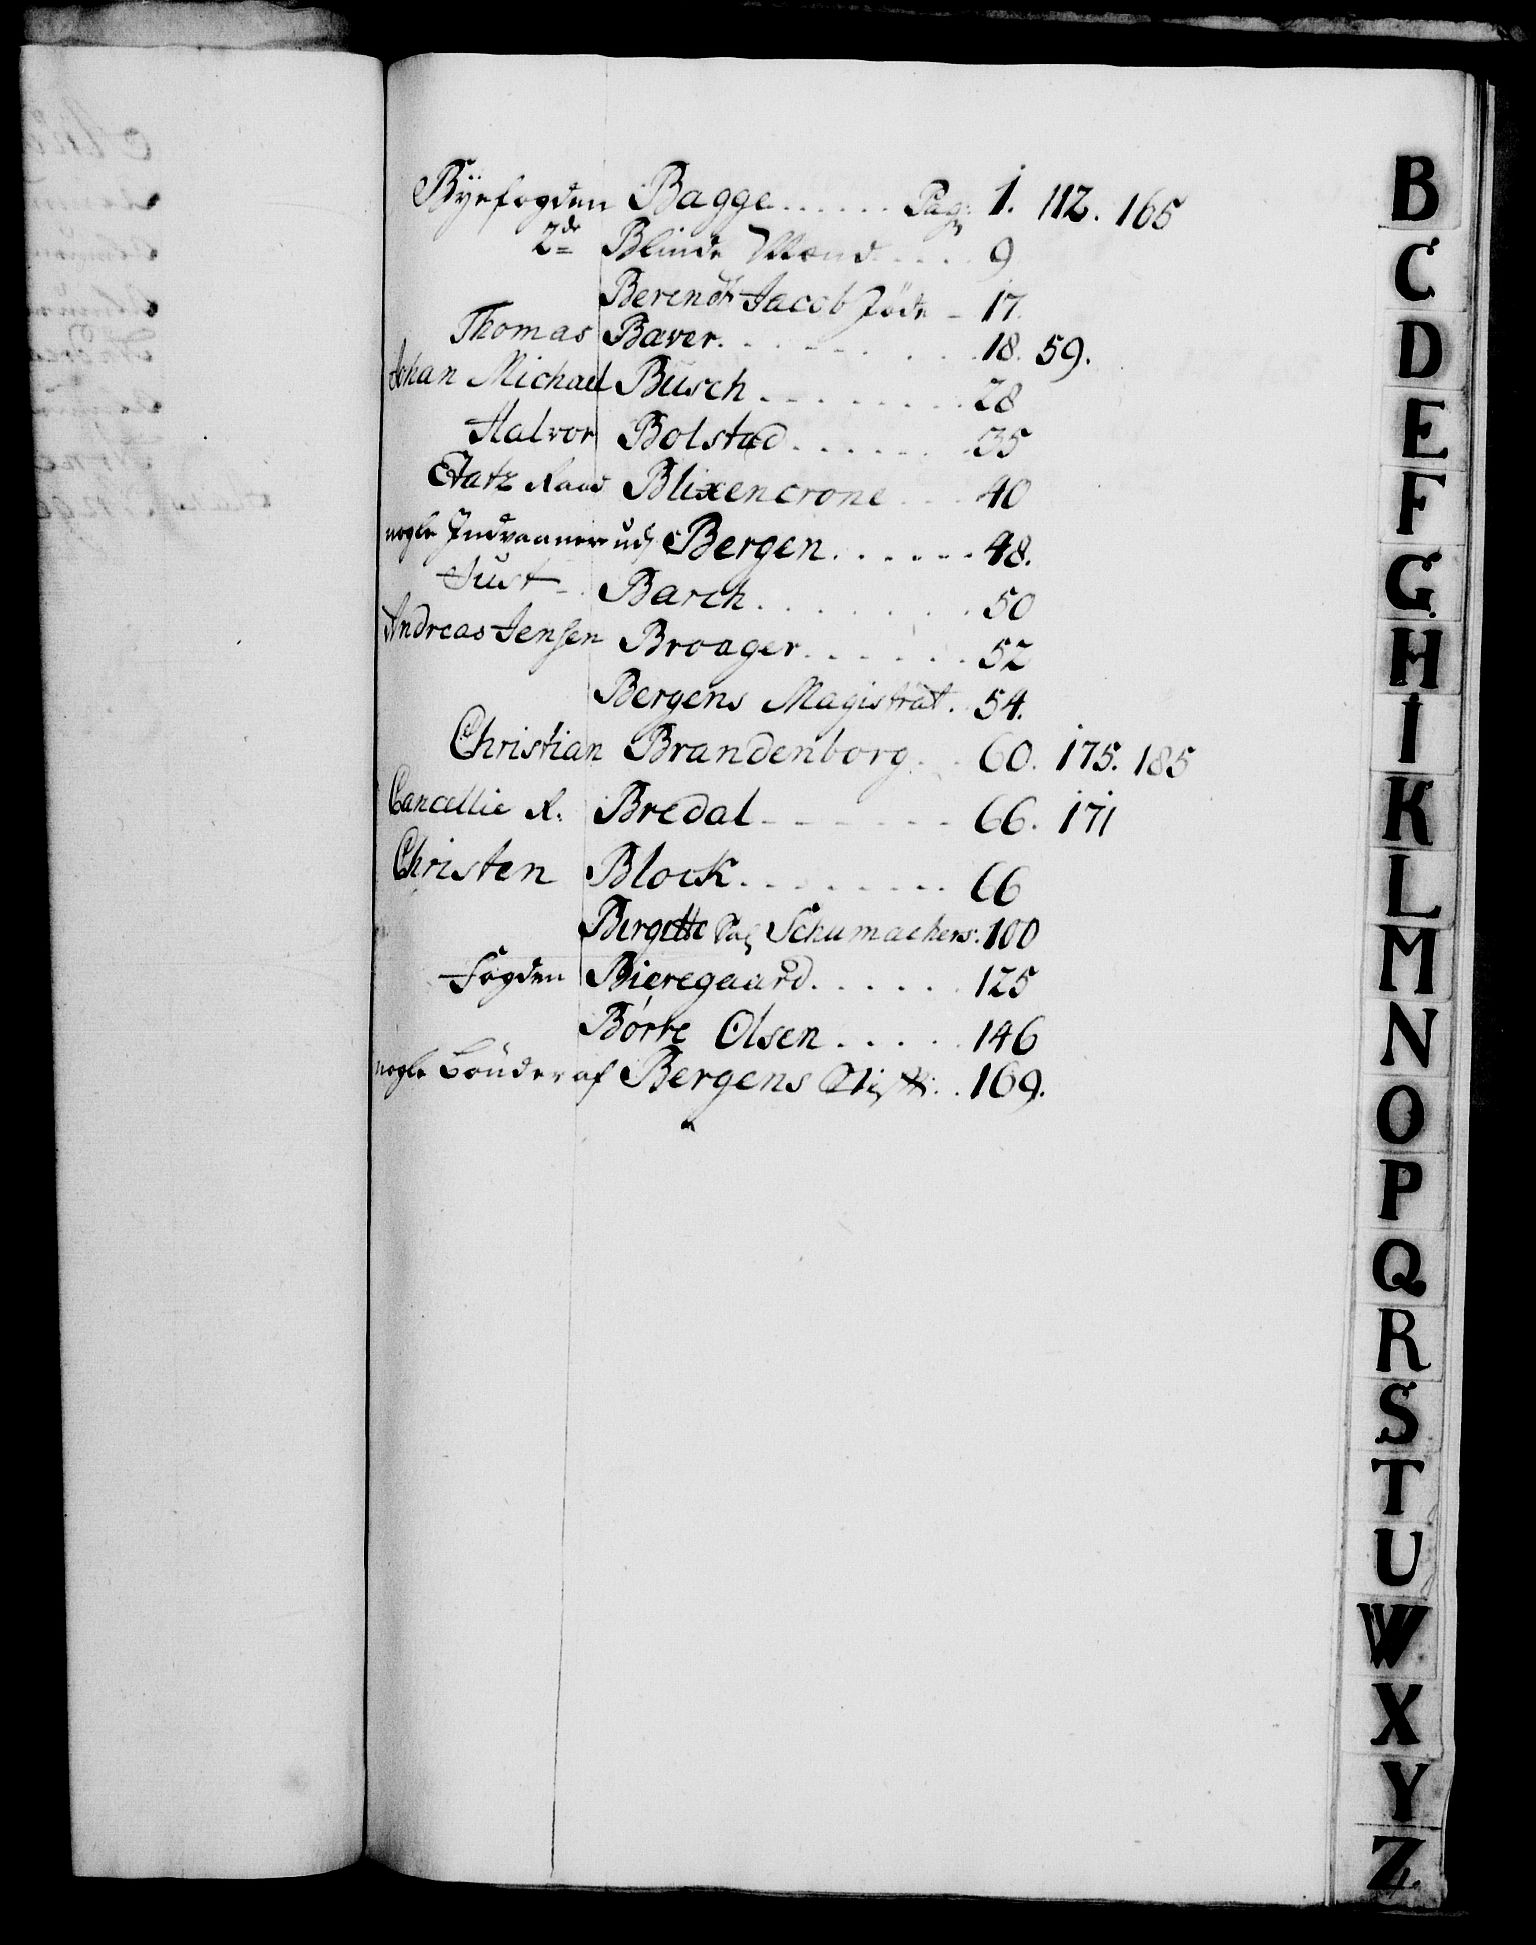 Byefogden Bagge...... Pag: 1. 112. 165
2de Blinde Mænd.... 9
Berendt Jacob Jöde - 17.
Thomas Baver......... 18. 59.
Johan Michael Busch......... 28
Halvor Bolstad....... 35
Etatz Raad Blixencrone... 40
nogle Indvaanere udj Bergen....... 48.
Just Barch........ 50
Andreas Jensen Broager....... 52
Bergens Magistrat.. 54.
Christian Brandenborg... 60. 175. 185
Cancellie R. Bredal - - - - - - 66. 171
Christen Block......... 66
Birgitte Sal Schumachers. 100
Fogden Bieregaard....... 125
Börre Olsen...... 146
nogle Bönder af Bergens Stift.. 169.
B
C
D
E
F
G
H
I
K
L
M
N
O
P
Q
R
S
T
U
W
X
Y
Z